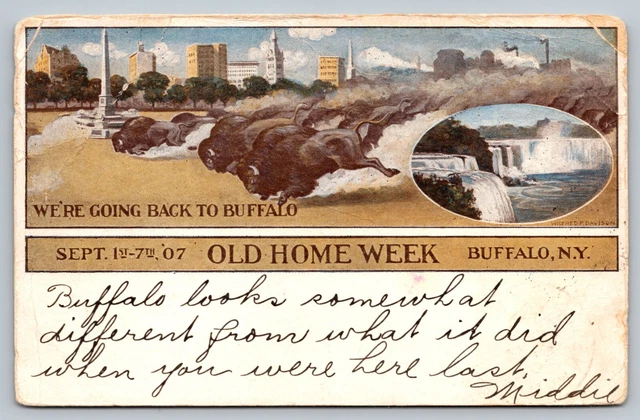 WE'RE GOING BACK TO BUFFALO
WILFRED P. DAVISON
SEPT. 1ST-7TH, '07 OLD HOME WEEK BUFFALO, N.Y.
Buffalo looks somewhat
different from what it did
when you were here last.
Middie